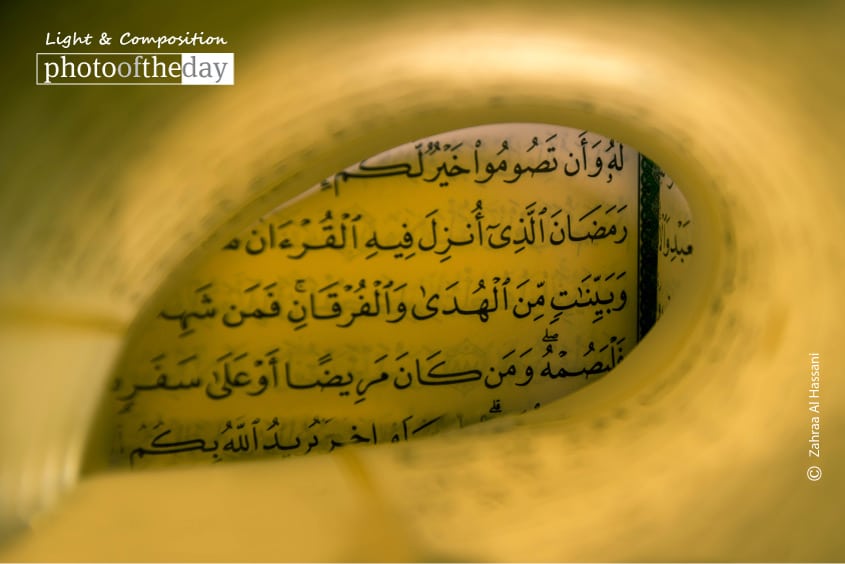 Light & Composition
photooftheday
لَّهُۥ وَأَن تَصُومُوا۟ خَيْرٌ لَّكُمْ
رَمَضَانَ ٱلَّذِىٓ أُنزِلَ فِيهِ ٱلْقُرْءَانُ
عِبَادِى
وَبَيِّنَٰتٍ مِّنَ ٱلْهُدَىٰ وَٱلْفُرْقَانِ ۚ فَمَن
فَلْيَصُمْهُ ۖ وَمَن كَانَ مَرِيضًا أَوْ عَلَىٰ سَفَرٍ
يُرِيدُ ٱللَّهُ بِكُمُ
© Zahraa Al Hassani